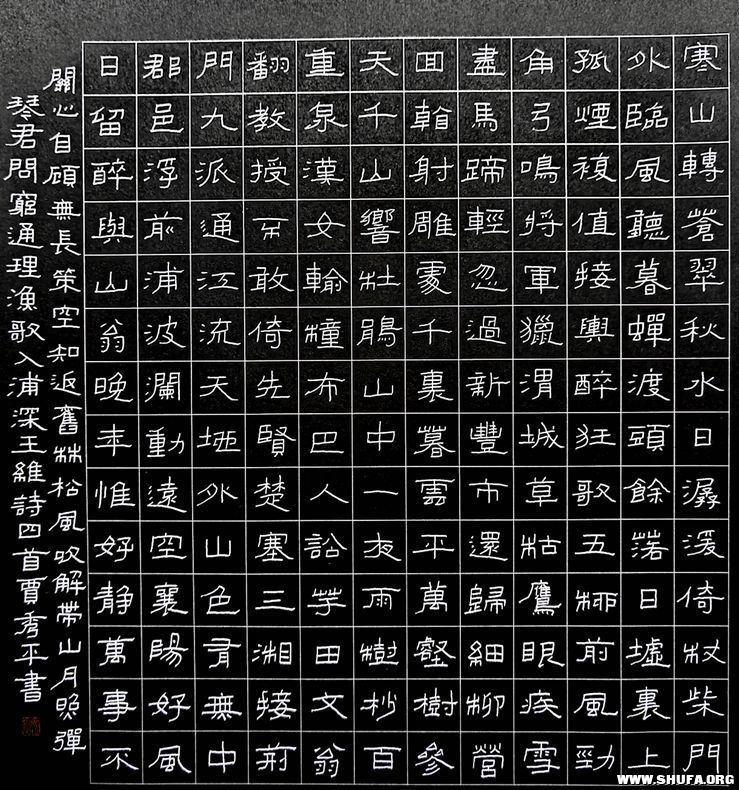 寒山轉蒼翠秋水日潺湲倚杖柴門
外臨風聽暮蟬渡頭餘落日墟裏上
孤煙複值接輿醉狂歌五柳前風勁
角弓鳴將軍獵渭城草枯鷹眼疾雪
盡馬蹄輕忽過新豐市還歸細柳營
回看射雕處千裏暮雲平萬壑樹參
天千山響杜鵑山中一夜雨樹杪百
重泉漢女輸橦布巴人訟芋田文翁
翻教授不敢倚先賢楚塞三湘接荊
門九派通江流天地外山色有無中
郡邑浮前浦波瀾動遠空襄陽好風
日留醉與山翁晚年惟好靜萬事不
關心自顧無長策空知返舊林松風吹解帶山月照彈
琴君問窮通理漁歌入浦深王維詩四首賈秀平書
WWW.SHUFA.ORG